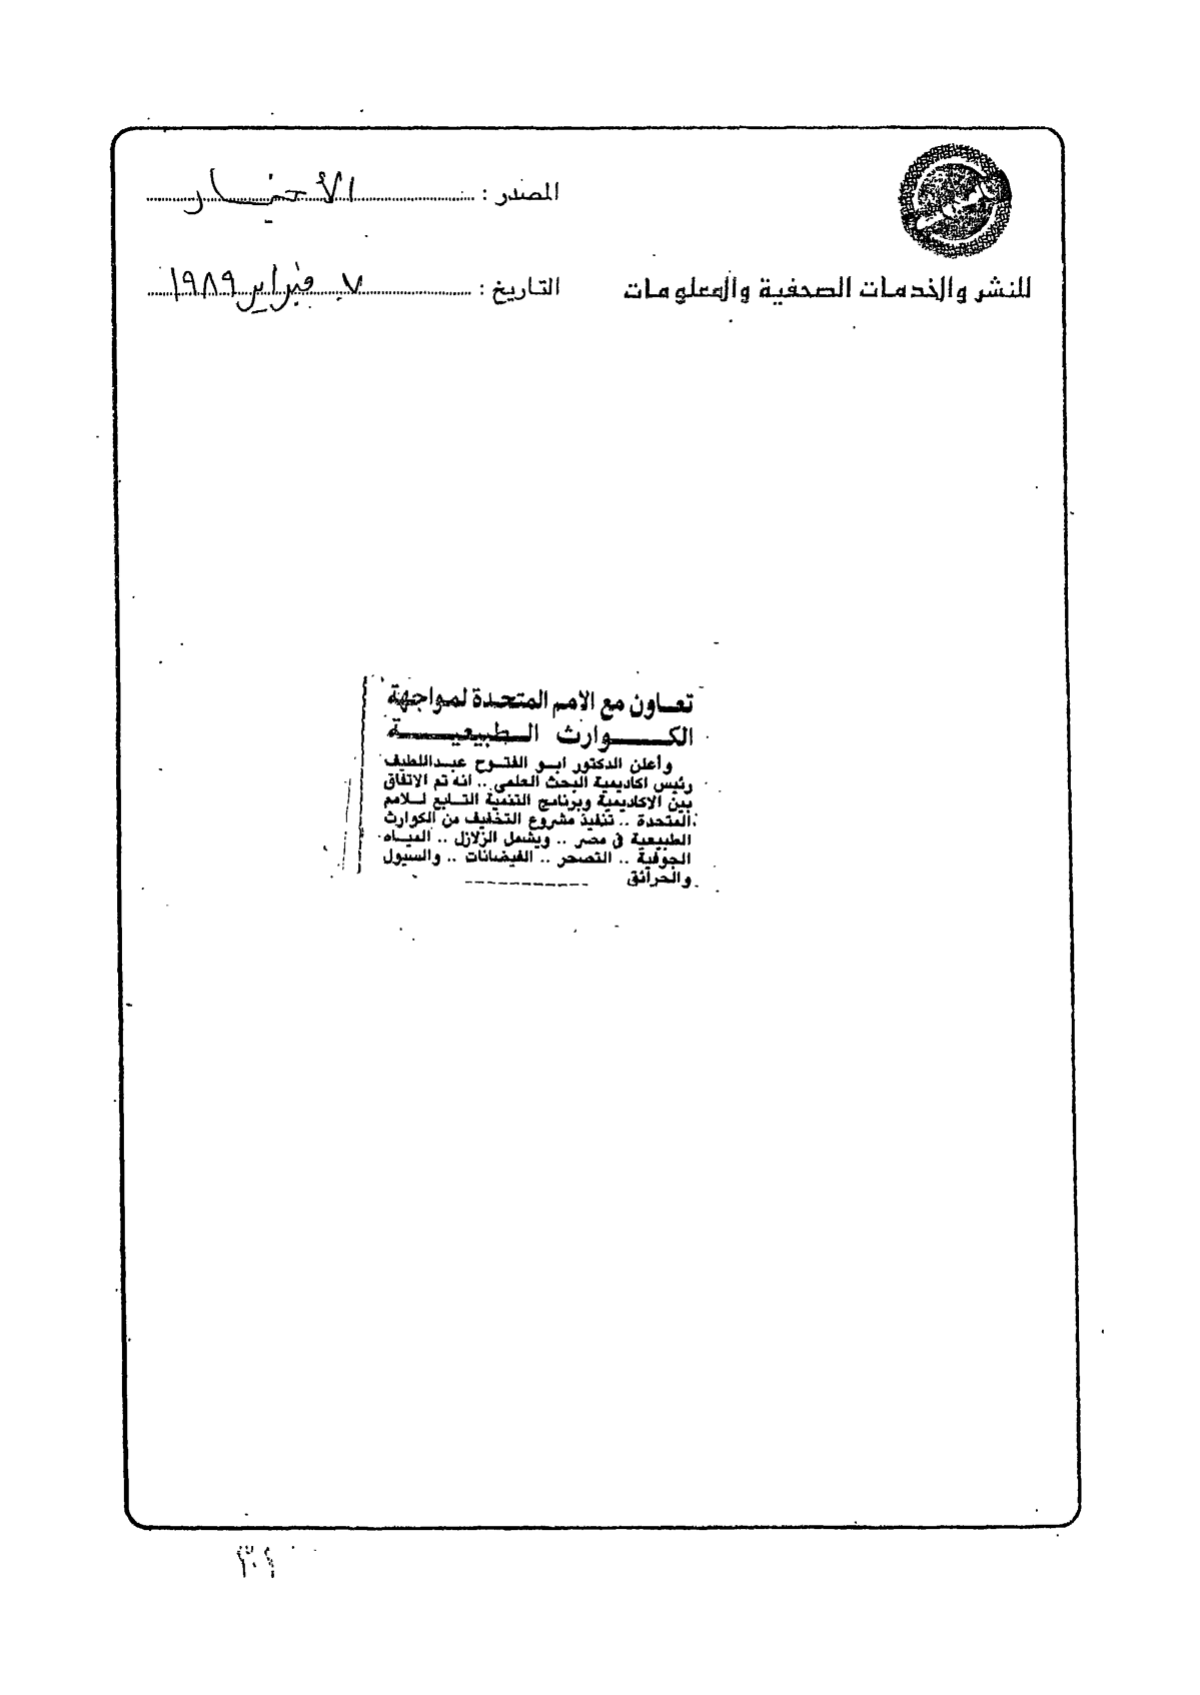 المصدر : الأخبار
للنشر والخدمات الصحفية والمعلومات
التاريخ : ٧ فبراير ١٩٨٩
تعاون مع الامم المتحدة لمواجهة
الكوارث الطبيعية
وأعلن الدكتور ابو الفتوح عبداللطيف
رئيس اكاديمية البحث العلمى .. انه تم الاتفاق
بين الاكاديمية وبرنامج التنمية التابع للامم
المتحدة .. تنفيذ مشروع التخفيف من الكوارث
الطبيعية فى مصر .. ويشمل الزلازل .. المياه
الجوفية .. التصحر .. الفيضانات .. والسيول
والحرائق